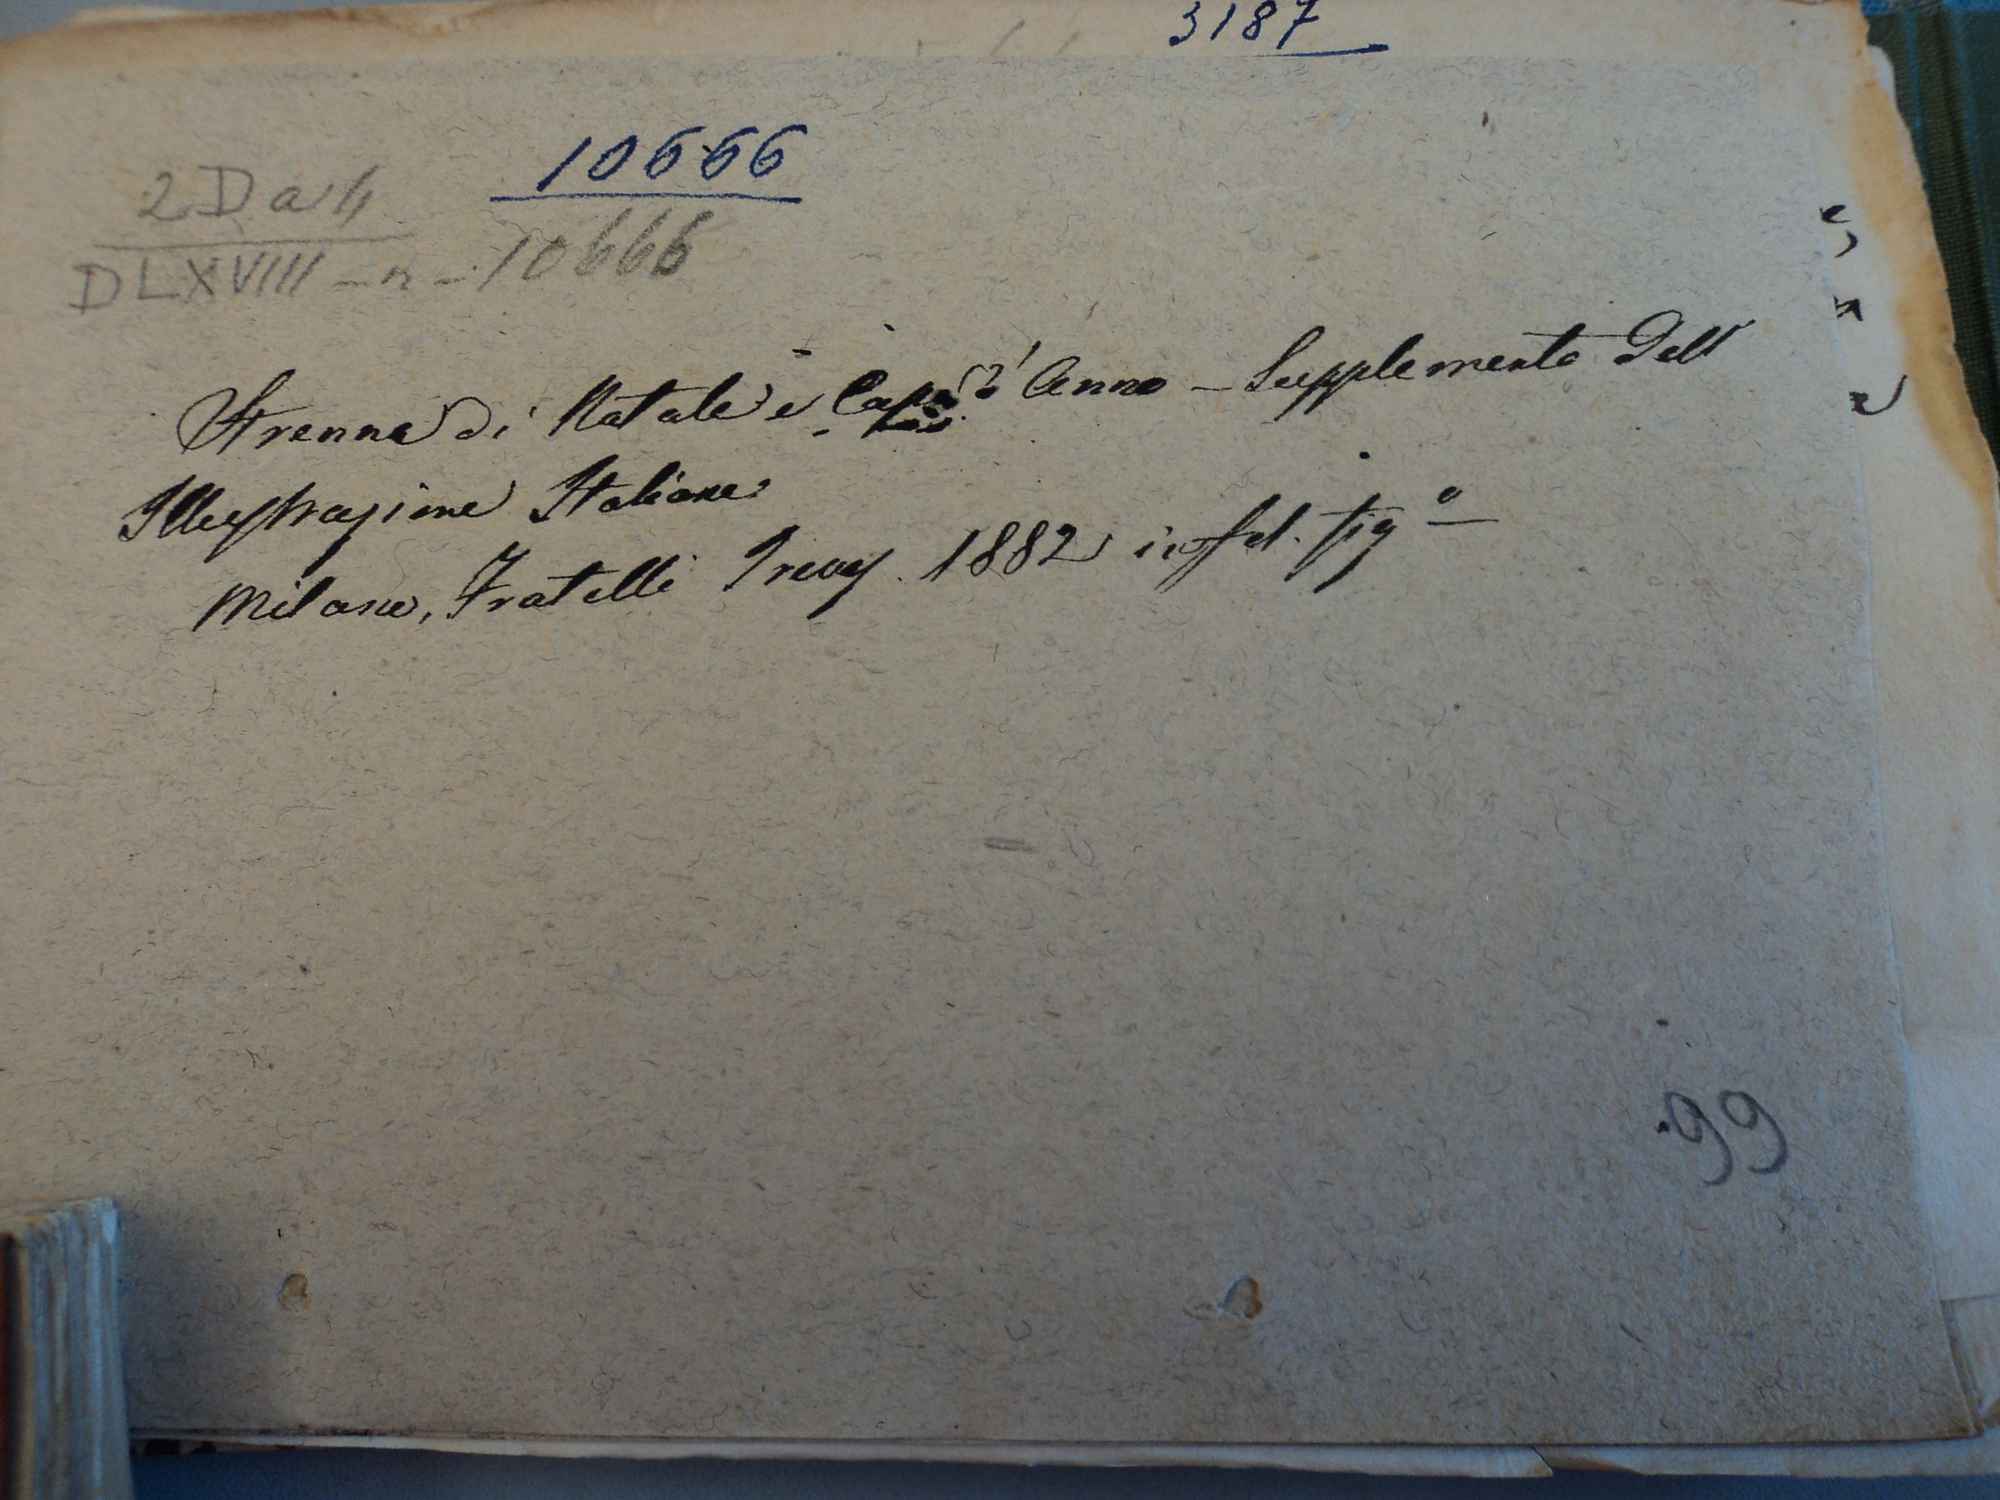 3187
10666
2 D a 4
DLXVIII - n - 10666
Strenna di Natale e Capo d'Anno - Supplemento Dell'
Illustrazione Italiana
Milano, Fratelli Treves. 1882 in fol. fig.º
99